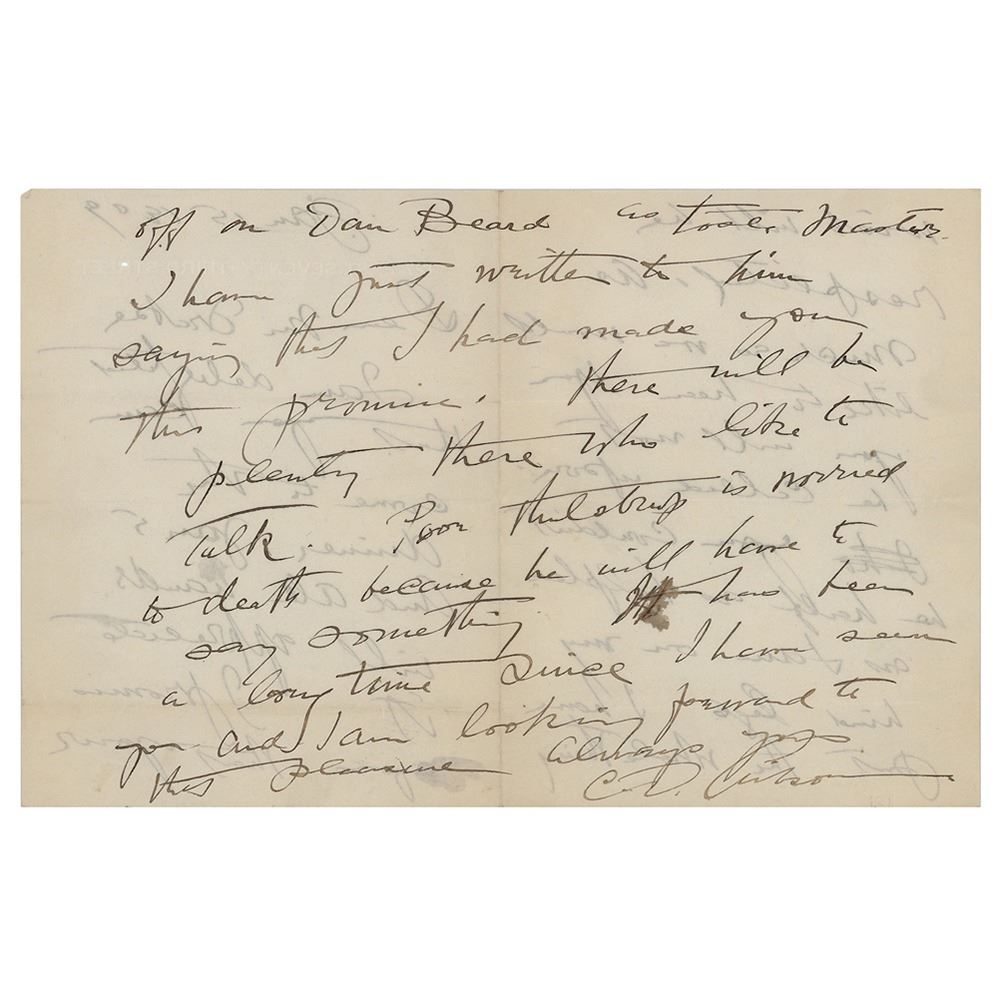 off on Dan Beard as toast Master.
I have just written to him
saying that I had made you
this promise. there will be
plenty there who like to
Talk. Poor Thulstrup is worried
to death because he will have to
say something It has been
a long time since I have seen
you and I am looking forward to
this pleasure Always yours
C. D. Gibson